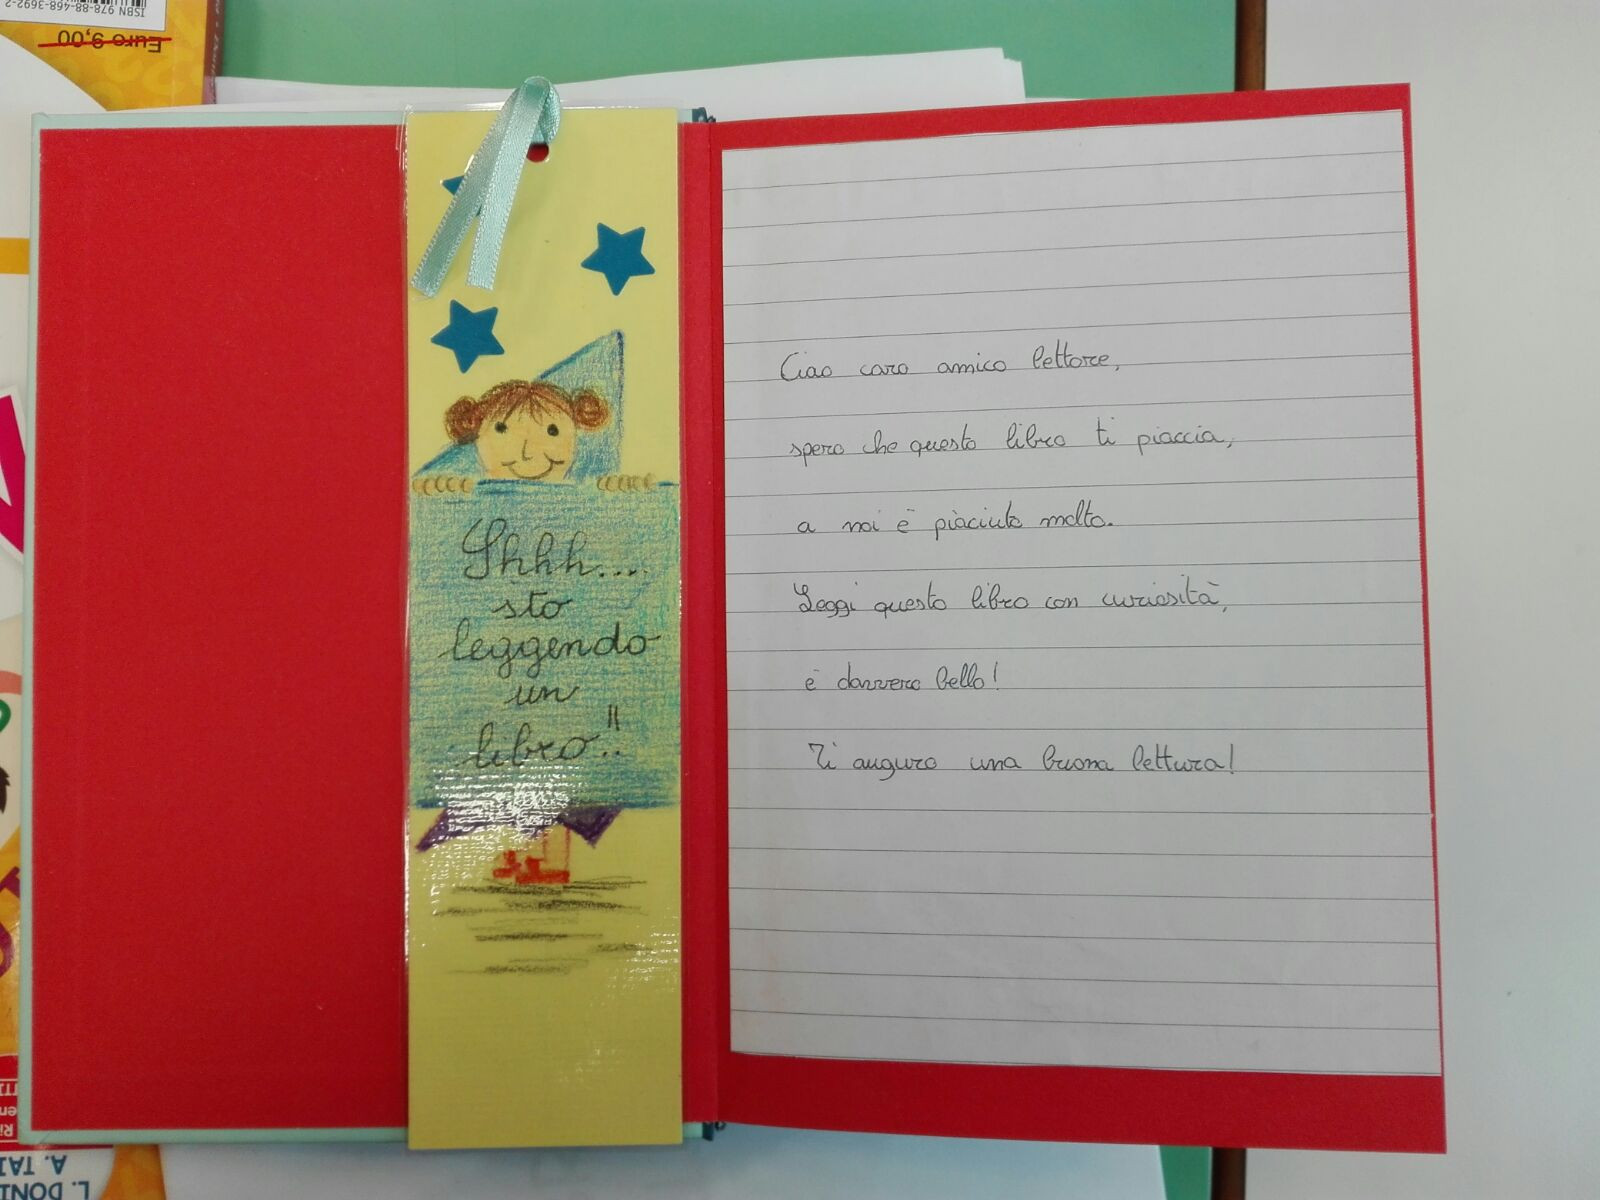 ISBN 978-88-468-3692-2
Euro 9,00
Shhh....
sto
leggendo
un
libro..!!
Ciao caro amico lettore,
spero che questo libro ti piaccia,
a noi è piaciuto molto.
Leggi questo libro con curiosità,
è davvero bello!
Ti auguro una buona lettura!
L. DONI
A. TAI